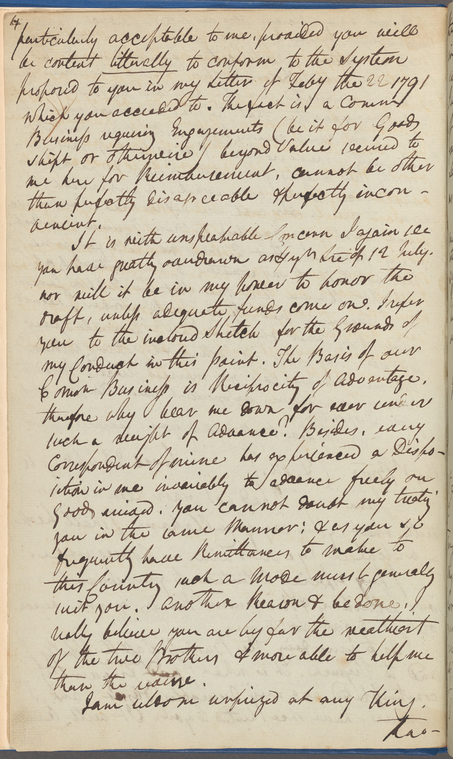 4
particularly acceptable to me, provided you will
be content litterally to conform to the System
proposed to you in my Letter of Feby the 22 1791
which you acceeded to. The fact is a Comn
Business requiring Engagements (be it for Goods
Shipt or otherwise) beyond Value secured to
me here for Reimbursement, cannot be other
than perfectly disagreeable & perfectly incon-
venient.
It is with unspeakable Concern I again see
you have greatly overdrawn as & of 12 July.
nor will it be in my power to honor the
draft, unless adequate funds come on. I refer
you to the inclosed Sketch for the Grounds of
my Conduct in this point. The Basis of our
Comon Business is Reciprocity of Advantage,
therefore why bear me down for ever under
such a weight of Advance? Besides, every
Correspondent of mine has experienced a Dispo-
sition in me invariably to advance freely on
Goods arrived. You cannot doubt my treating
you in the same Manner; & as you so
frequently have Remittances to make to
this Country such a Mode must generally
suit you. Another Reason & be done, I
really believe you are by far the wealthiest
of the two Brothers & more able to help me
than the
I am seldom surprized at any thing,
thro-